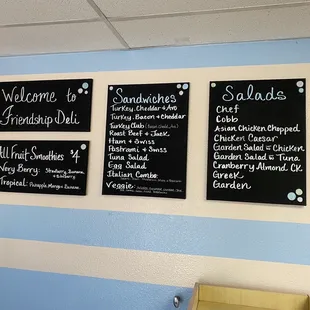 Welcome to
Friendship Deli
All Fruit Smoothies $4
Very Berry: Strawberry, Banana,
Tropical: Pineapple, Mango, Banana
Sandwiches
Turkey, Cheddar & Avo
Turkey, Bacon & Cheddar
Turkey Club
Roast Beef & Jack
Ham & Swiss
Pastrami & Swiss
Tuna Salad
Egg Salad
Italian Combo
Veggie
Salads
Chef
Cobb
Asian Chicken Chopped
Chicken Caesar
Garden Salad w Chicken
Garden Salad w Tuna
Cranberry Almond CK
Greek
Garden